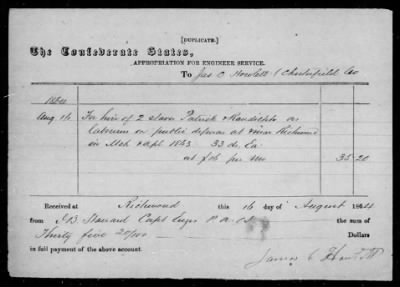 [DUPLICATE.]
The Confederate States,
APPROPRIATION FOR ENGINEER SERVICE.
To Jas C Howlett (Chesterfield Co
1864
Aug 16 For hire of 2 slaves Patrick & Randolph as
laborers on public defences at & near Richmond
in Mch & Apl 1863. 33 ds
at per mo 35.20
Received at Richmond this 16 day of August 1864
from J B Stanard Capt Engrs P.A.C.S. the sum of
Thirty five 20/100 Dollars
in full payment of the above account.
James C Howlett